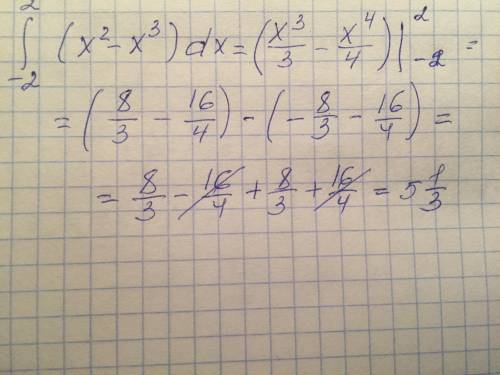 ∫₋₂² (x² - x³) dx = (x³/3 - x⁴/4)|₋₂² =
= (8/3 - 16/4) - (-8/3 - 16/4) =
= 8/3 - 16/4 + 8/3 + 16/4 = 5 1/3